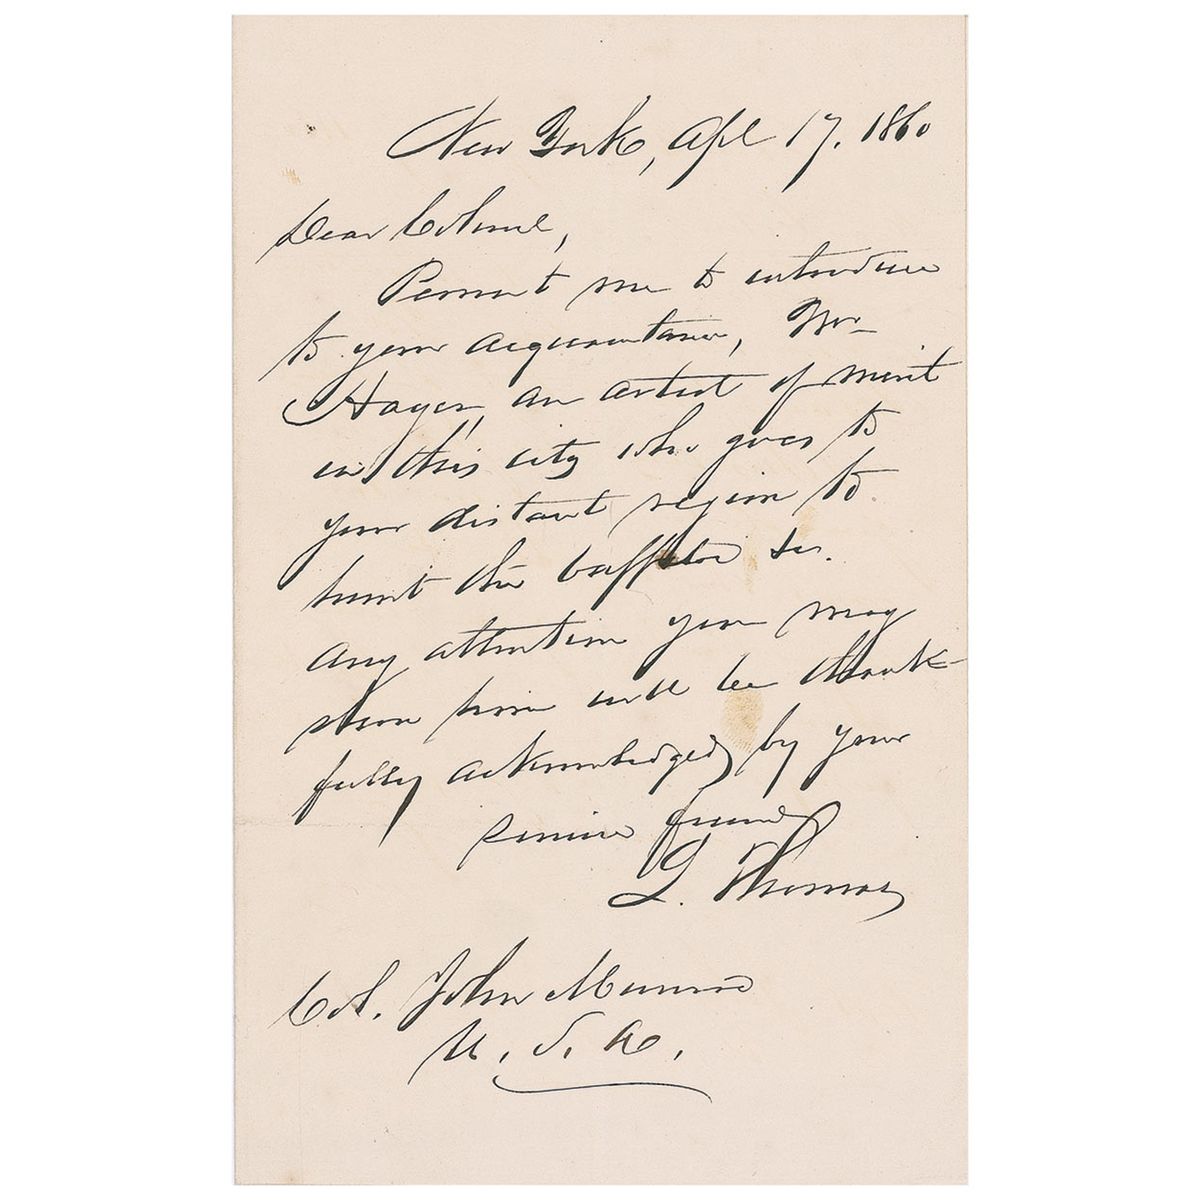 New York, Apl 17. 1860
Dear Colonel,
Permit me to introduce
to your acquaintance, Mr
Hays, an artist of merit
in this city who goes to
your distant region to
hunt the buffalo &c.
Any attention you may
show him will be thank-
fully acknowledged by your
sincere friend
L. Thomas
Col. John Munroe
U. S. A.